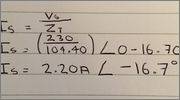 Is = Vs / ZT
Is = (230 / 104.40) ∠0-16.70
Is = 2.20A ∠-16.7°